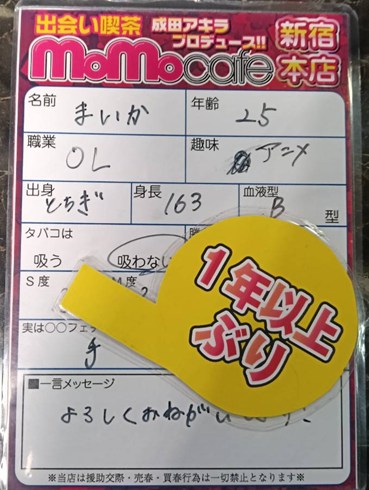 出会い喫茶 成田アキラ プロデュース!!
MoMocafe 新宿本店
名前 まいか 年齢 25
職業 OL 趣味 アニメ
出身 とちぎ 身長 163 血液型 B 型
タバコは
吸う 吸わない
S度 M度
実は○○フェチ
手
1年以上ぶり
■一言メッセージ
よろしくおねがい
※当店は援助交際・売春・買春行為は一切禁止となります※